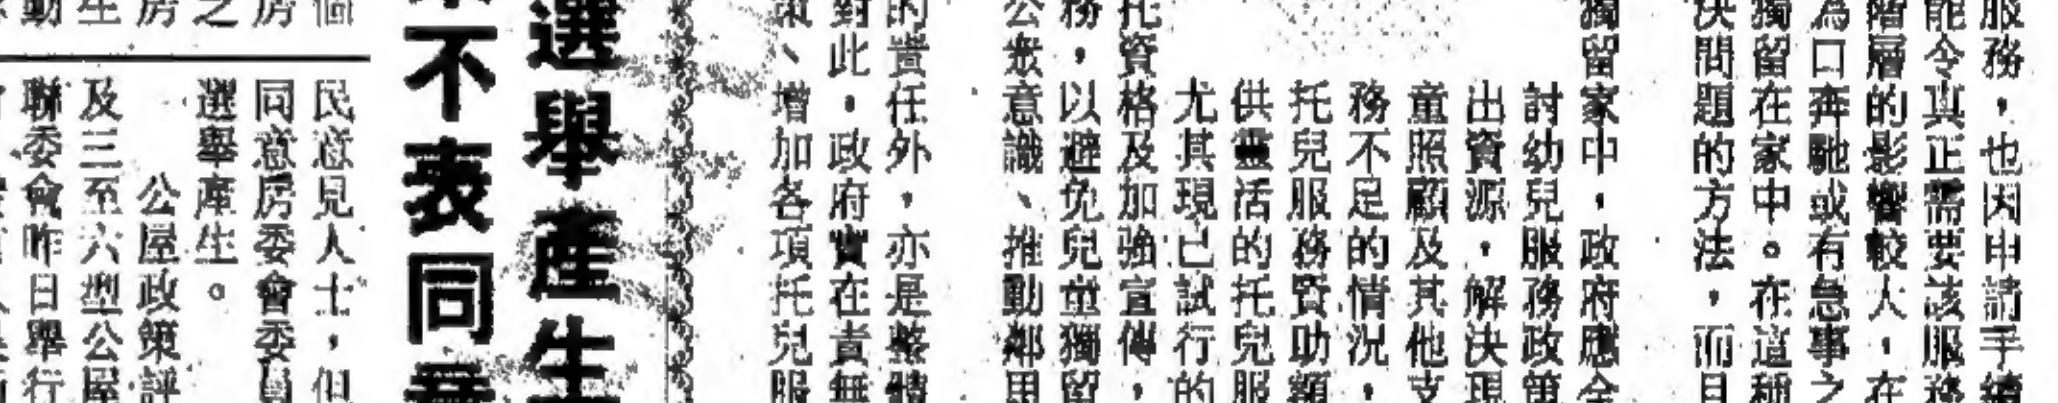 服務，也因申請手續
能令真正需要該服務
階層的影響較大，在
為口奔馳或有急事之
獨留在家中。在這種
決問題的方法，而且
獨留家中，政府應全
討幼兒服務政策
出資源，解決現
童照顧及其他支
務不足的情況，
托兒服務資助額
供靈活的托兒服
尤其現已試行的
托資格及加強宣傳，
務，以避免兒童獨留
公眾意識、推動鄰里
的責任外，亦是整體
對此，政府實在責無
策、增加各項托兒服
選舉產生
不表同意
個
房
之
房
生
動
民意見人士，但
同意房委會委員
選舉產生。
公屋政策評
及三至六型公屋
聯委會昨日舉行